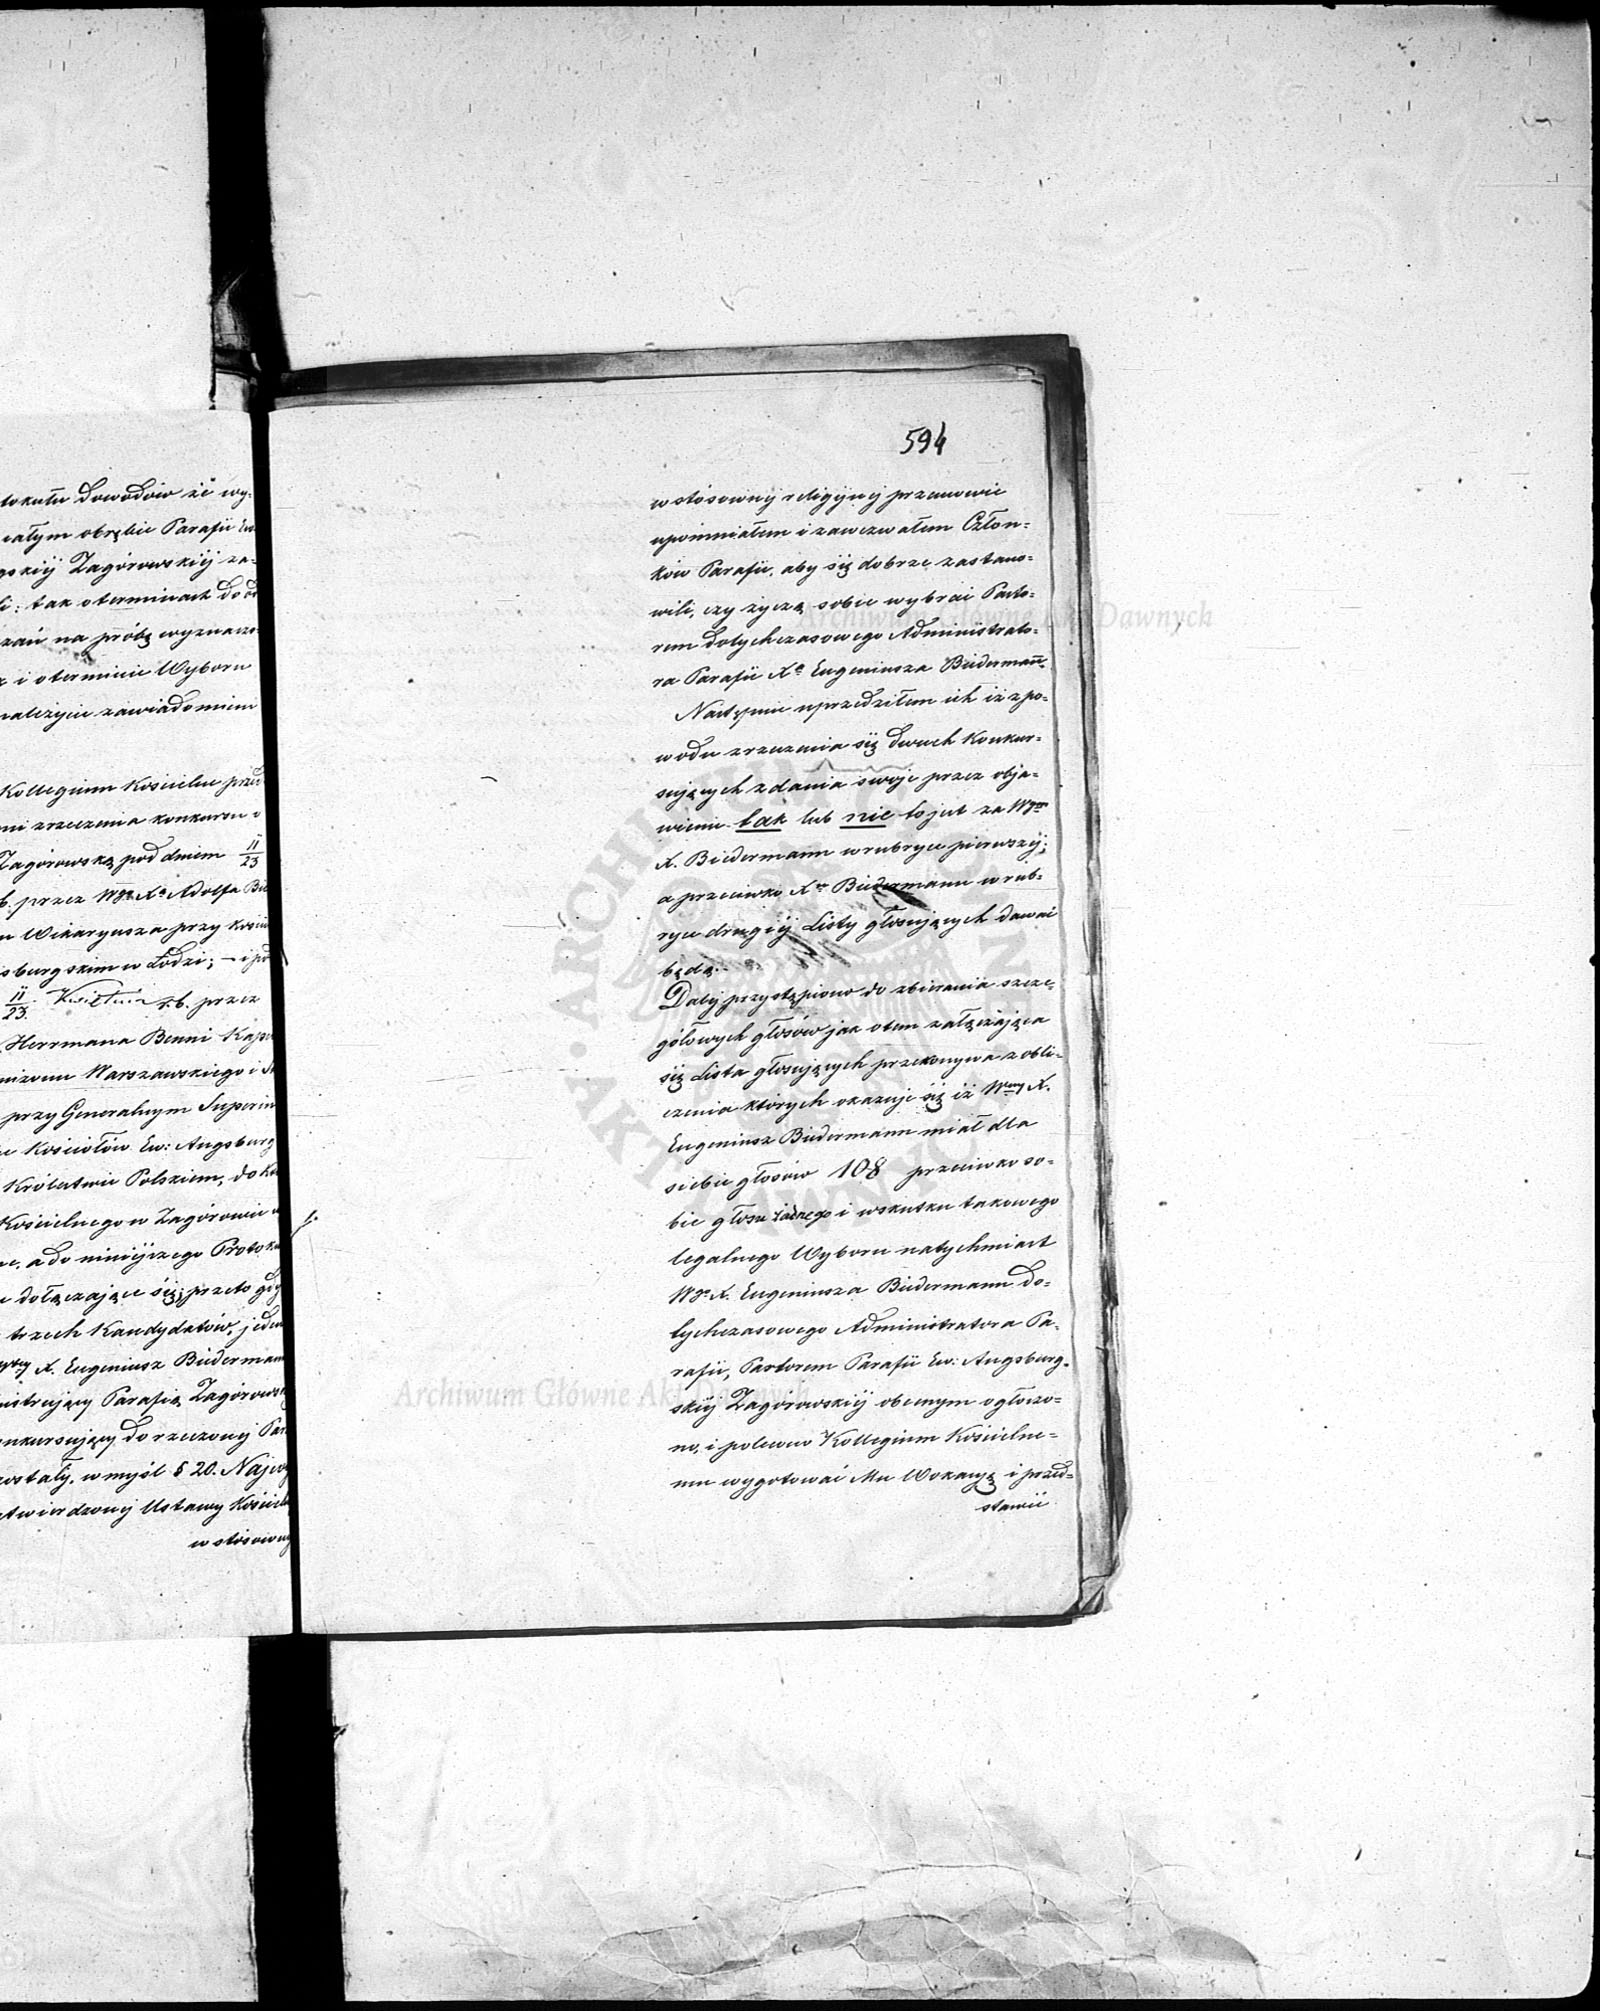 tokułu dowodów że wy-
całym obrębie Parafii Ew
gskiéj Zagórowskiéj za-
li: tak o terminach do od
zań na próbę wyznaczo-
i o terminie Wyboru
należycie zawiadomieni
Kollegium Kościelne przed
mi zrzeczenia konkursu o
Zagórowską pod dniem 11/23
b. przez Wgo Xa Adolfa Bie
Wikaryusza przy kości
sburgskim w Łodzi; – i pod
11/23 Kwietnia r.b. przez
Herrmana Benni Kape
nizonu Warszawskiego i
przy Generalnym Superin
Kościołów Ew: Augsburg
Królestwie Polskiem, do Ko
Kościelnego w Zagórowie
ne, a do niniéjszego Protoku
dołączające się; przeto gdy
trzech Kandydatów, jeden
Wny X. Eugeniusz Biedermann
nistrujący Parafią Zagórowsk
onkursujący do rzeczonéj Par
został, w myśl § 20. Najwy
twierdzonéj Ustawy Kościel
w stósownéj
594
w stósownéj religijnéj przemowie
upomniałem i zawezwałem Człon=
ków Parafii, aby się dobrze zastano=
wili, czy życzą sobie wybrać Pasto=
rem dotychczasowego Administrato=
ra Parafii Xa Eugeniusza Biedermann.
Następnie uprzedziłem ich iż z po=
wodu zrzeczenia się dwuch Konkur=
sujących zdania swoje przez obja=
wienie tak lub nie to jest za Wym
X. Biedermann w rubryce pierwszéj;
a przeciwko Xu Biedermann w rub=
ryce drugiéj Listy głosujących dawać
będą.
Daléj przystąpiono do zbierania szcze=
gółowych głosów jak o tem załączająca
się Lista głosujących przekonywa z obli=
czenia których okazuje się iż Wny X.
Eugeniusz Biedermann miał dla
siebie głosów 108 przeciwko so=
bie głosu żadnego i wskutku takowego
legalnego Wyboru natychmiast
Wgo X. Eugeniusza Biedermann do=
tychczasowego Administratora Pa=
rafii, Pastorem Parafii Ew: Augsburg=
skiéj Zagórowskiéj obecnym ogłoszo=
no, i polecono Kollegium Kościelne=
mu wygotować Mu Wokacyę i przed=
stawić
Archiwum Główne Akt Dawnych
Archiwum Główne Akt Dawnych